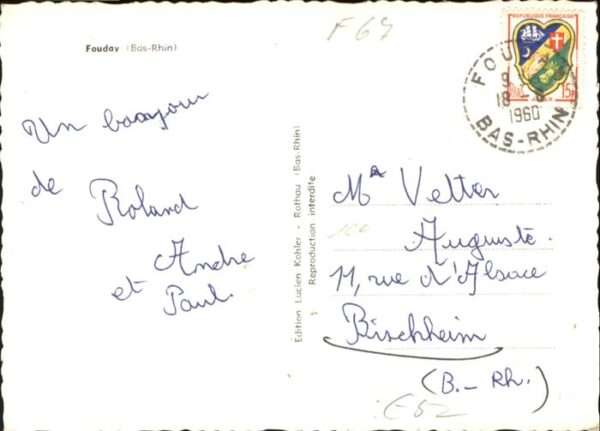 F 67
Fouday (Bas-Rhin)
Un bonjour
de Roland
André
et Paul.
Edition Lucien Kohler - Rothau (Bas-Rhin)
Reproduction interdite
REPUBLIQUE FRANÇAISE
15F
FOU
9
18 - 8
1960
BAS-RHIN
Mr Velter
Auguste.
11, rue d'Alsace
Bischheim
(B.- Rh.)